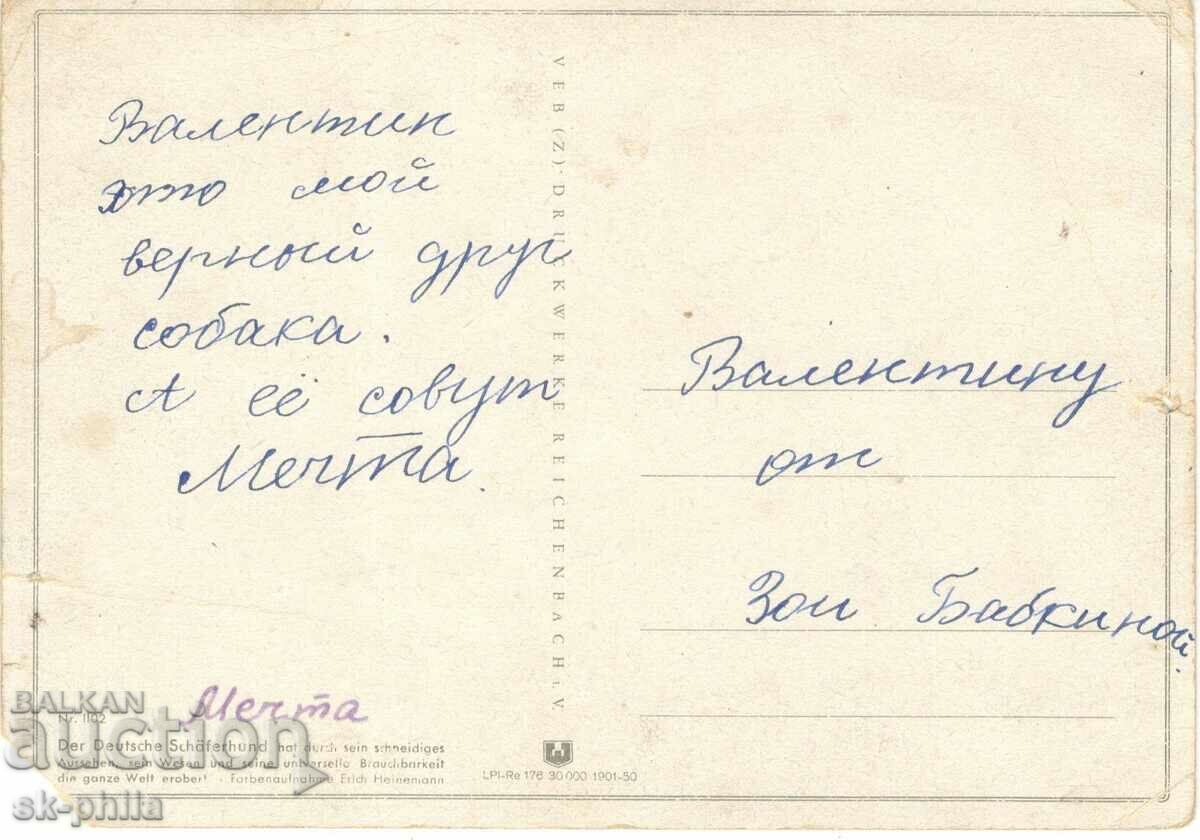 Валентин
это мой
верный друг
собака.
А её совут
Мечта.
VEB (Z)·DRUCKWERKE REICHENBACH i. V.
Валентину
от
Зои Бабкиной.
Мечта
Nr. 1102
Der Deutsche Schäferhund hat durch sein schneidiges
Aussehen, sein Wesen und seine universelle Brauchbarkeit
die ganze Welt erobert · Farbenaufnahme Erich Heinemann
LPI-Re 176 30 000 1901-50
BALKAN
auction
sk-phila